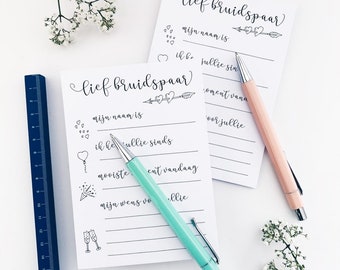 lief bruidspaar
mijn naam is
ik ken jullie sinds
moment van
voor jullie
lief bruidspaar
mijn naam is
ik ken jullie sinds
mooiste moment vandaag
mijn wens voor jullie